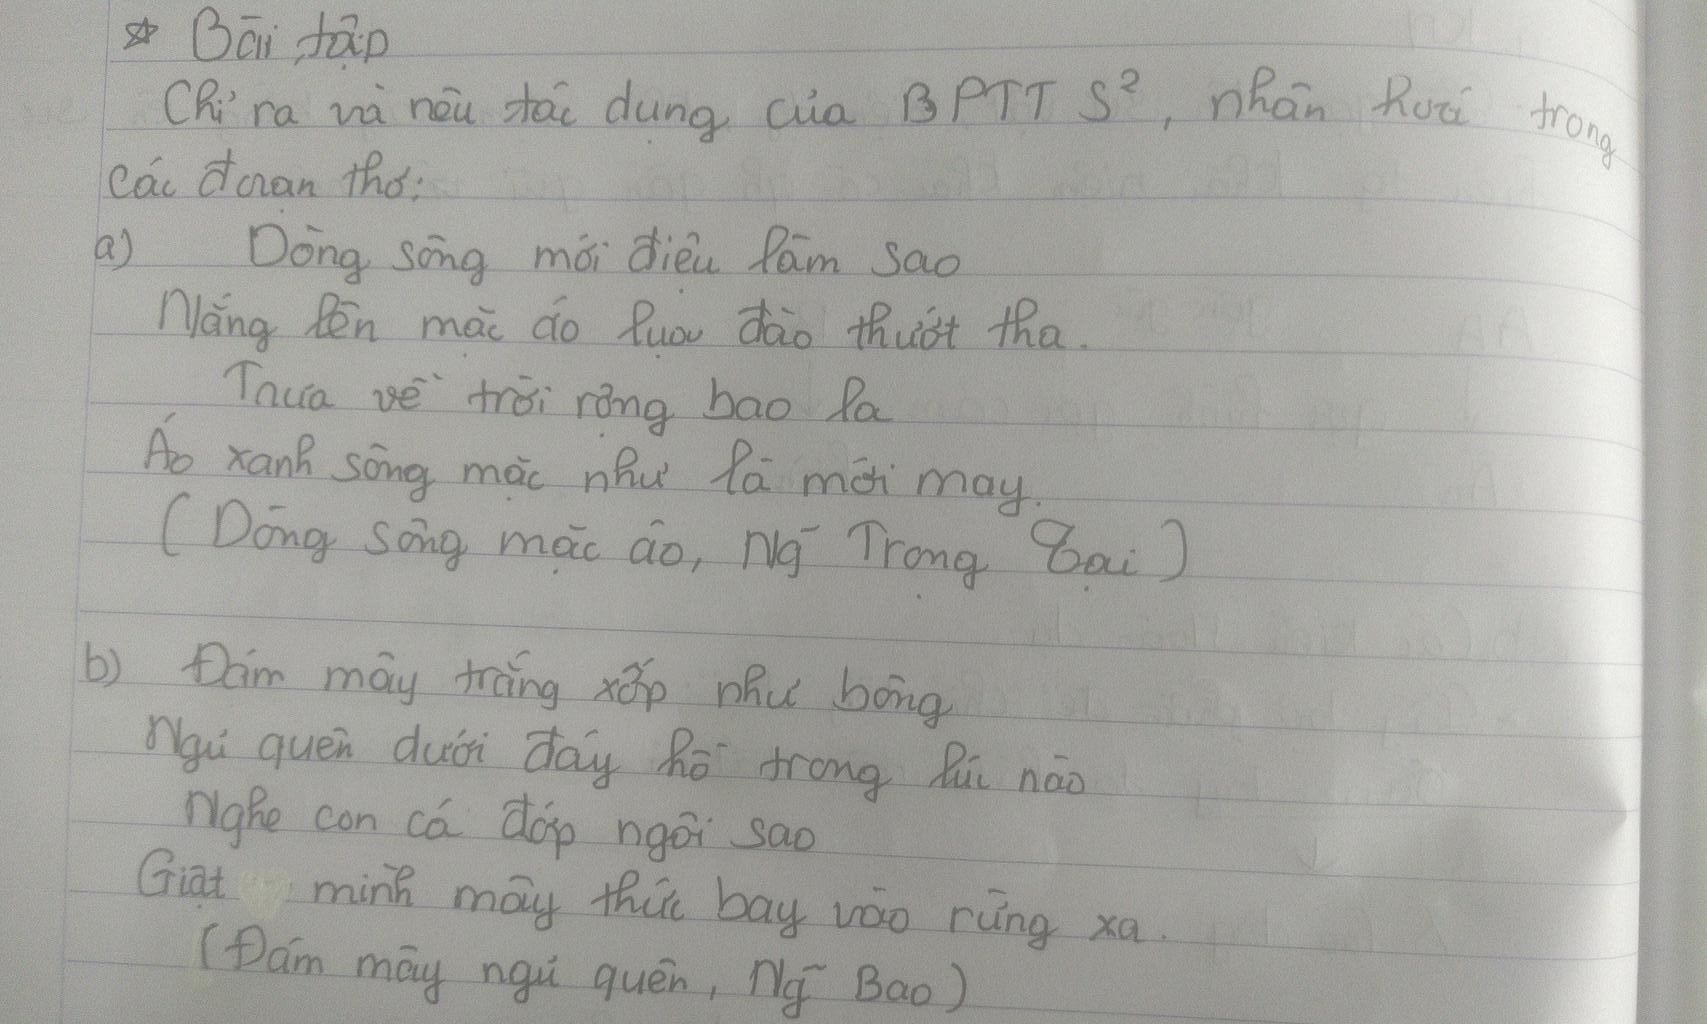 ☆ Bài tập
Chỉ ra và nêu tác dụng của BPTT S², nhân hoá trong
các đoạn thơ:
a) Dòng sông mới điệu làm sao
Nắng lên mặc áo lụa đào thướt tha.
Trưa về trời rộng bao la
Áo xanh sông mặc như là mới may.
(Dòng sông mặc áo, Ng~ Trọng Tạo)
b) Đám mây trắng xốp như bông
Ngủ quên dưới đáy hồ trong lúc nào
Nghe con cá đớp ngôi sao
Giật mình mây thức bay vào rừng xa.
(Đám mây ngủ quên, Ng~ Bao)